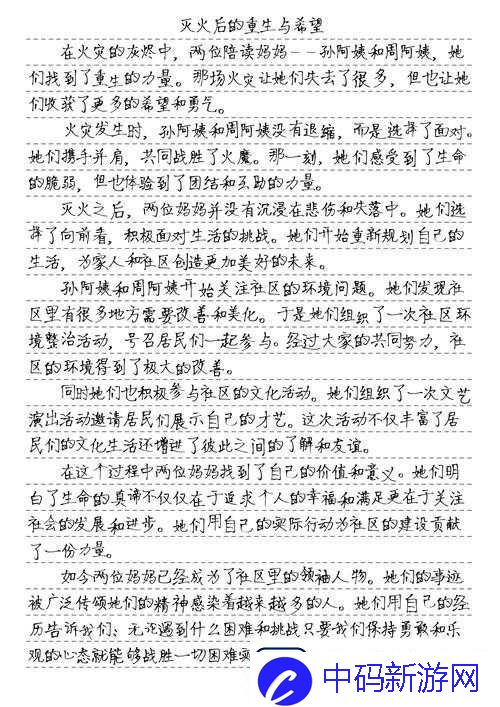 灭火后的重生与希望
在火灾的灰烬中，两位陪读妈妈--孙阿姨和周阿姨，她
们找到了重生的力量。那场火灾让她们失去了很多，但也让她
们收获了更多的希望和勇气。
火灾发生时，孙阿姨和周阿姨没有退缩，而是选择了面对。
她们携手并肩，共同战胜了火魔。那一刻，她们感受到了生命
的脆弱，但也体验到了团结和互助的力量。
灭火之后，两位妈妈并没有沉浸在悲伤和失落中。她们选
择了向前看，积极面对生活的挑战。她们开始重新规划自己的
生活，为家人和社区创造更加美好的未来。
孙阿姨和周阿姨开始关注社区的环境问题。她们发现社
区里有很多地方需要改善和美化。于是她们组织了一次社区环
境整治活动，号召居民们一起参与。经过大家的共同努力，社
区的环境得到了极大的改善。
同时她们也积极参与社区的文化活动。她们组织了一次文艺
演出活动邀请居民们展示自己的才艺。这次活动不仅丰富了居
民们的文化生活还增进了彼此之间的了解和友谊。
在这个过程中两位妈妈找到了自己的价值和意义。她们明
白了生命的真谛不仅仅在于追求个人的幸福和满足更在于关注
社会的发展和进步。她们用自己的实际行动为社区的建设贡献
了一份力量。
如今两位妈妈已经成为了社区里的领袖人物。她们的事迹
被广泛传颂她们的精神感染着越来越多的人。她们用自己的经
历告诉我们：无论遇到什么困难和挑战只要我们保持勇敢和乐
观的心态就能够战胜一切困难实
中码新游网